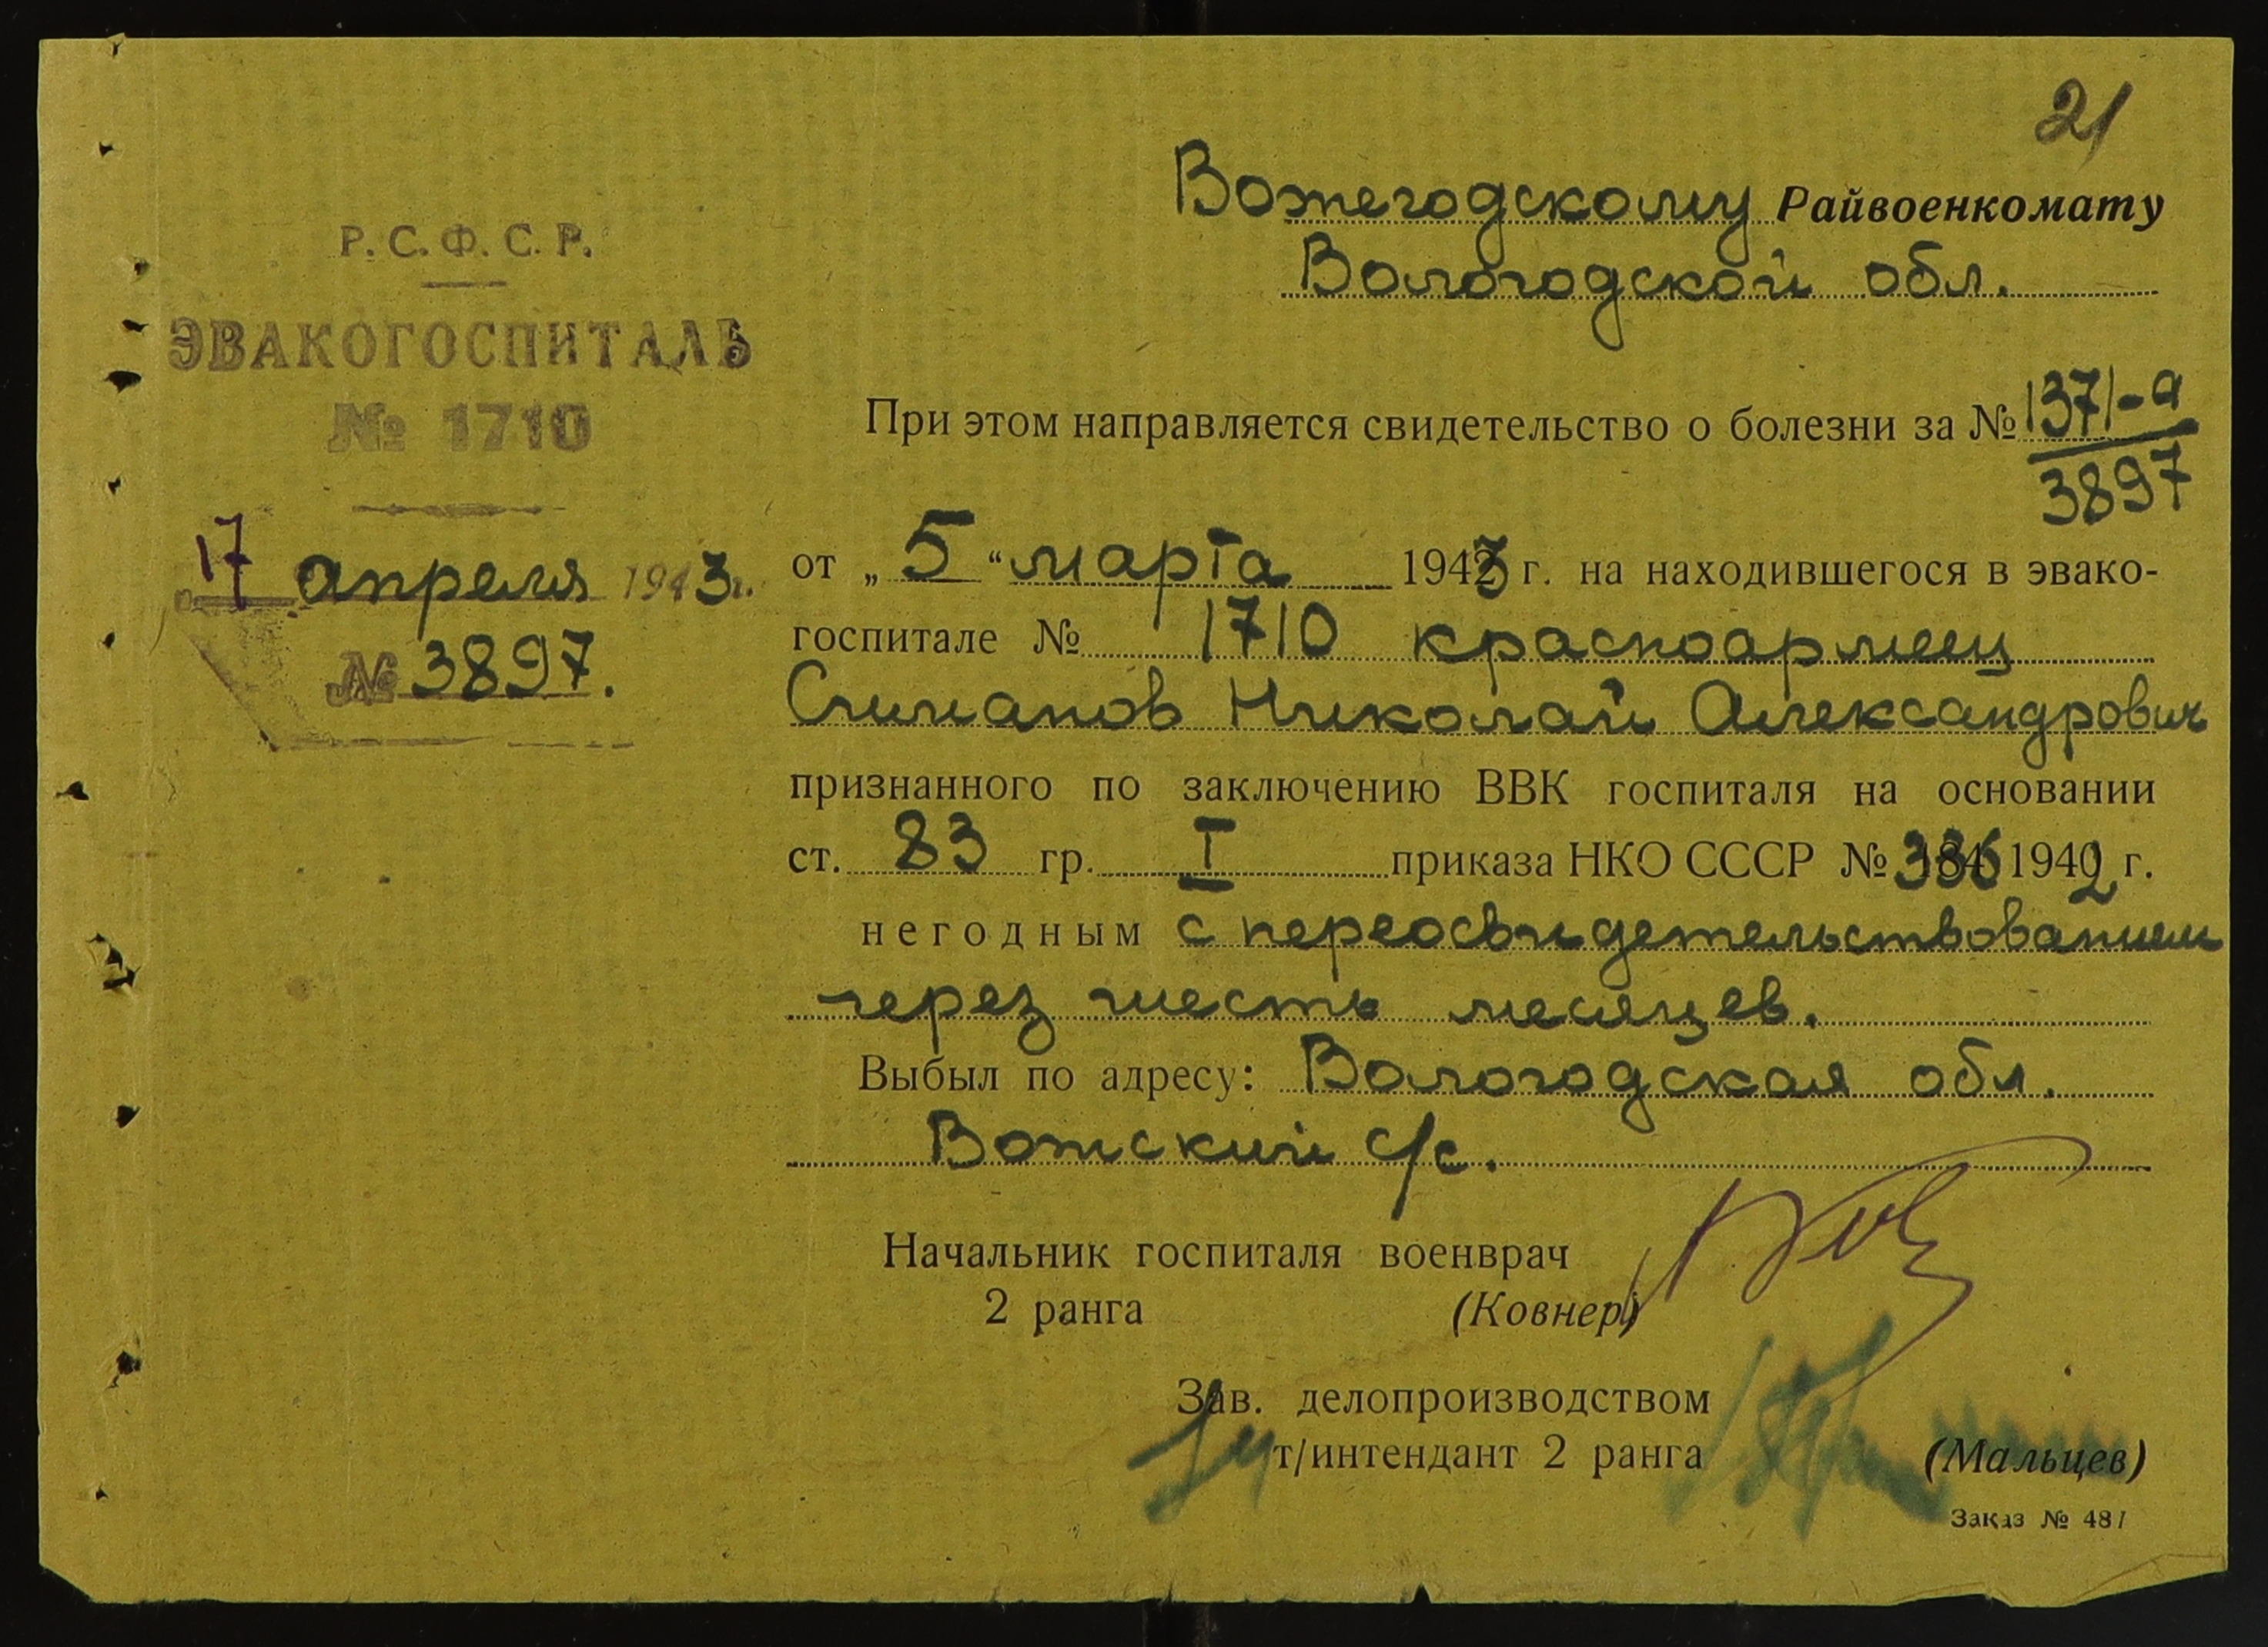 21
Р. С. Ф. С. Р.
ЭВАКОГОСПИТАЛЬ
№ 1710
17 апреля 1943 г.
№ 3897.
Вожегодскому Райвоенкомату
Вологодской обл.
При этом направляется свидетельство о болезни за № 1371-а
3897
от „ 5 “ марта 1943 г. на находившегося в эвако-
госпитале № 1710 красноармеец
Николай Александрович
признанного по заключению ВВК госпиталя на основании
ст. 83 гр. I приказа НКО СССР № 336 1942 г.
негодным с переосвидетельствованием
через шесть месяцев.
Выбыл по адресу: Вологодская обл.
Вожский с/с.
Начальник госпиталя военврач
2 ранга (Ковнер)
Зав. делопроизводством
т/интендант 2 ранга (Мальцев)
Заказ № 481